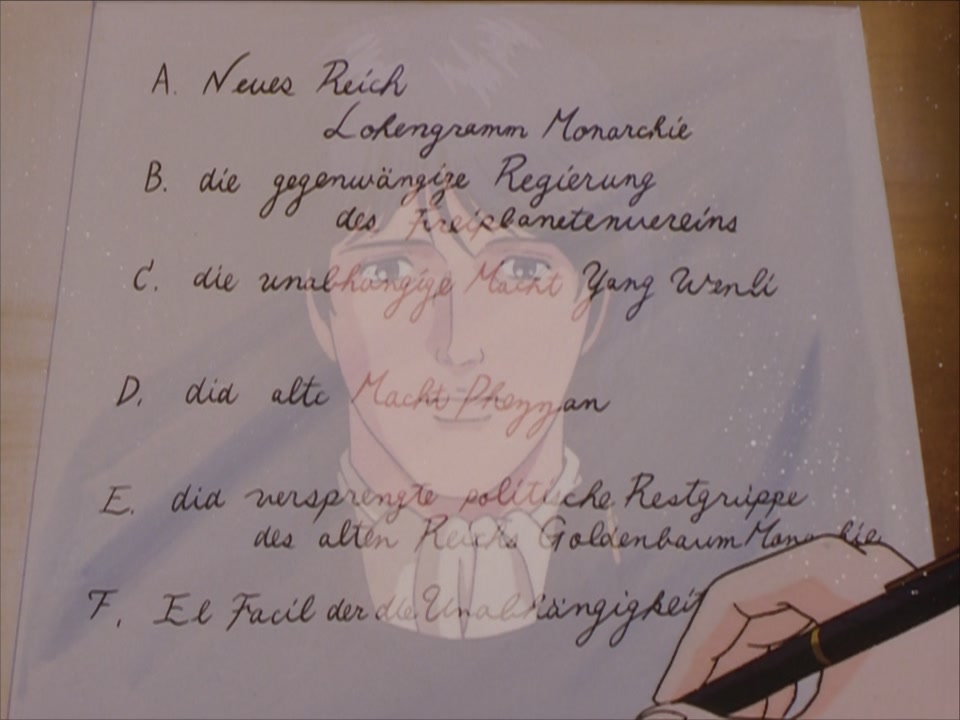 A. Neues Reich
Lohengramm Monarchie
B. die gegenwängize Regierung
des Freiplanetenvereins
C. die unabhängige Macht Yang Wenli
D. did alte Macht Phezzan
E. did versprengte politische Restgruppe
des alten Reichs Goldenbaum
F. El Facil der die Unabhängigkeit